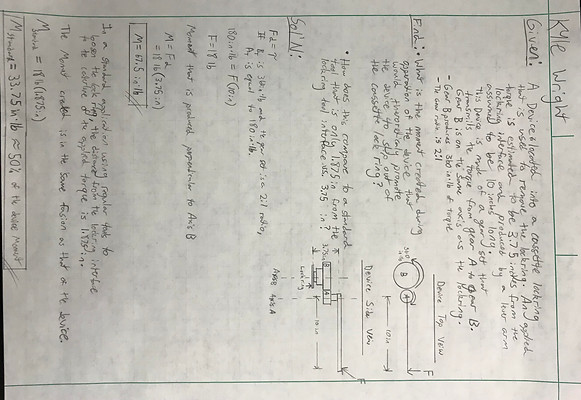 Kyle Wright
Given: A Device is located into a cassette lockring
that is used to remove the lockring. An applied
torque is estimated to be 3.75 inches from the
lockring interface and produced by a lever arm
assumed to be 10 inches long.
This Device is made of a gear set that
transmits the torque from gear A to gear B.
Gear B is on the same axis as the lockring.
- Gear B produces 360 in·lb of torque
- The gear ratio is 2:1
Find: What is the moment created during
operation of the device that
would theoretically promote
the device to slip out of
the cassette lock ring?
• How does this compare to a standard
tool that is only 1.875in from the
lockring tool interface vs. 3.75 in?
Device Top View
F
B
A
10in
Device Side View
F
3.75in
B
A
10in
Lockring
Axis B
Axis A
Sol'N:
Fd = T
If B is 360 in·lb and the gear set is a 2:1 ratio,
A is equal to 180 in·lb.
180 in·lb = F(10in)
F = 18 lb
Moment that is produced perpendicular to Axis B
M = Fd
= 18 lb (3.75in)
M = 67.5 in·lb
In a standard application using regular tools to
loosen the lock ring, the distance from the lockring interface
to the centerline of the applied torque is 1.875in.
The Moment created is in the same fashion as that of the device.
M standard = 18 lb (1.875in)
M standard = 33.75 in·lb ≈ 50% of the device Moment